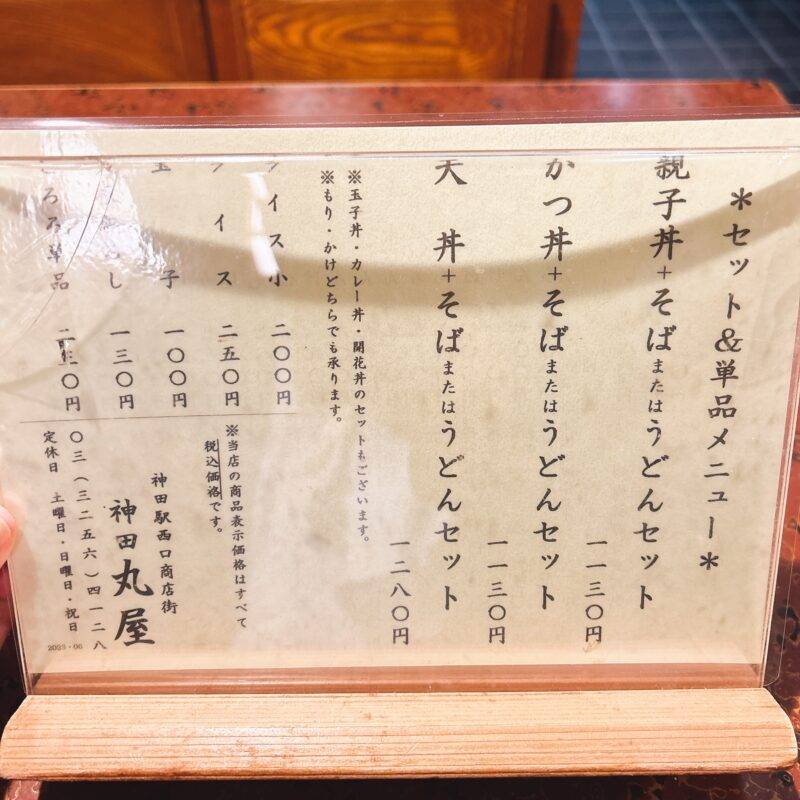 ＊セット＆単品メニュー＊
親子丼＋そばまたはうどんセット 一一三〇円
かつ丼＋そばまたはうどんセット 一一三〇円
天丼＋そばまたはうどんセット 一二八〇円
※玉子丼・カレー丼・開花丼のセットもございます。
※もり・かけどちらでも承ります。
ライス小 二〇〇円
ライス 二五〇円
玉子 一〇〇円
し 一三〇円
とろろ単品 円
※当店の商品表示価格はすべて
税込価格です。
神田駅西口商店街
神田丸屋
〇三（三二五六）四一二八
定休日 土曜日・日曜日・祝日
2023・06